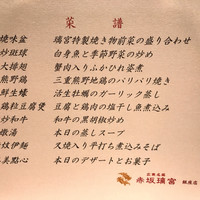 菜譜
焼味盆 璃宮特製焼き物前菜の盛り合わせ
炒斑球 白身魚と季節野菜の炒め
大排翅 蟹肉入りふかひれ姿煮
熊野鶏 三重熊野地鶏のパリパリ焼き
鮮蠔 活生牡蠣のガーリック蒸し
鶏粒豆腐煲 豆腐と鶏肉の塩干し魚煮込み
炒和牛 和牛の黒胡椒炒め
燉湯 本日の蒸しスープ
炆伊麺 叉焼入り平打ち煮込みそば
美點心 本日のデザートとお菓子
赤坂璃宮 銀座店